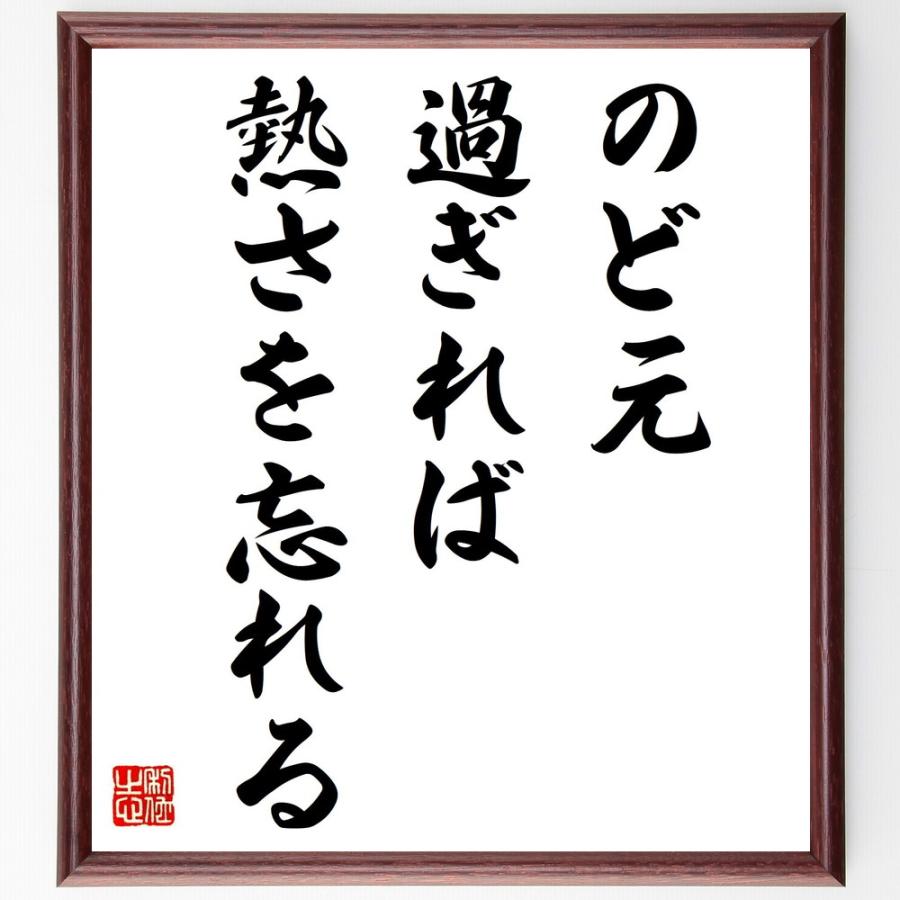 のど元
過ぎれば
熱さを忘れる